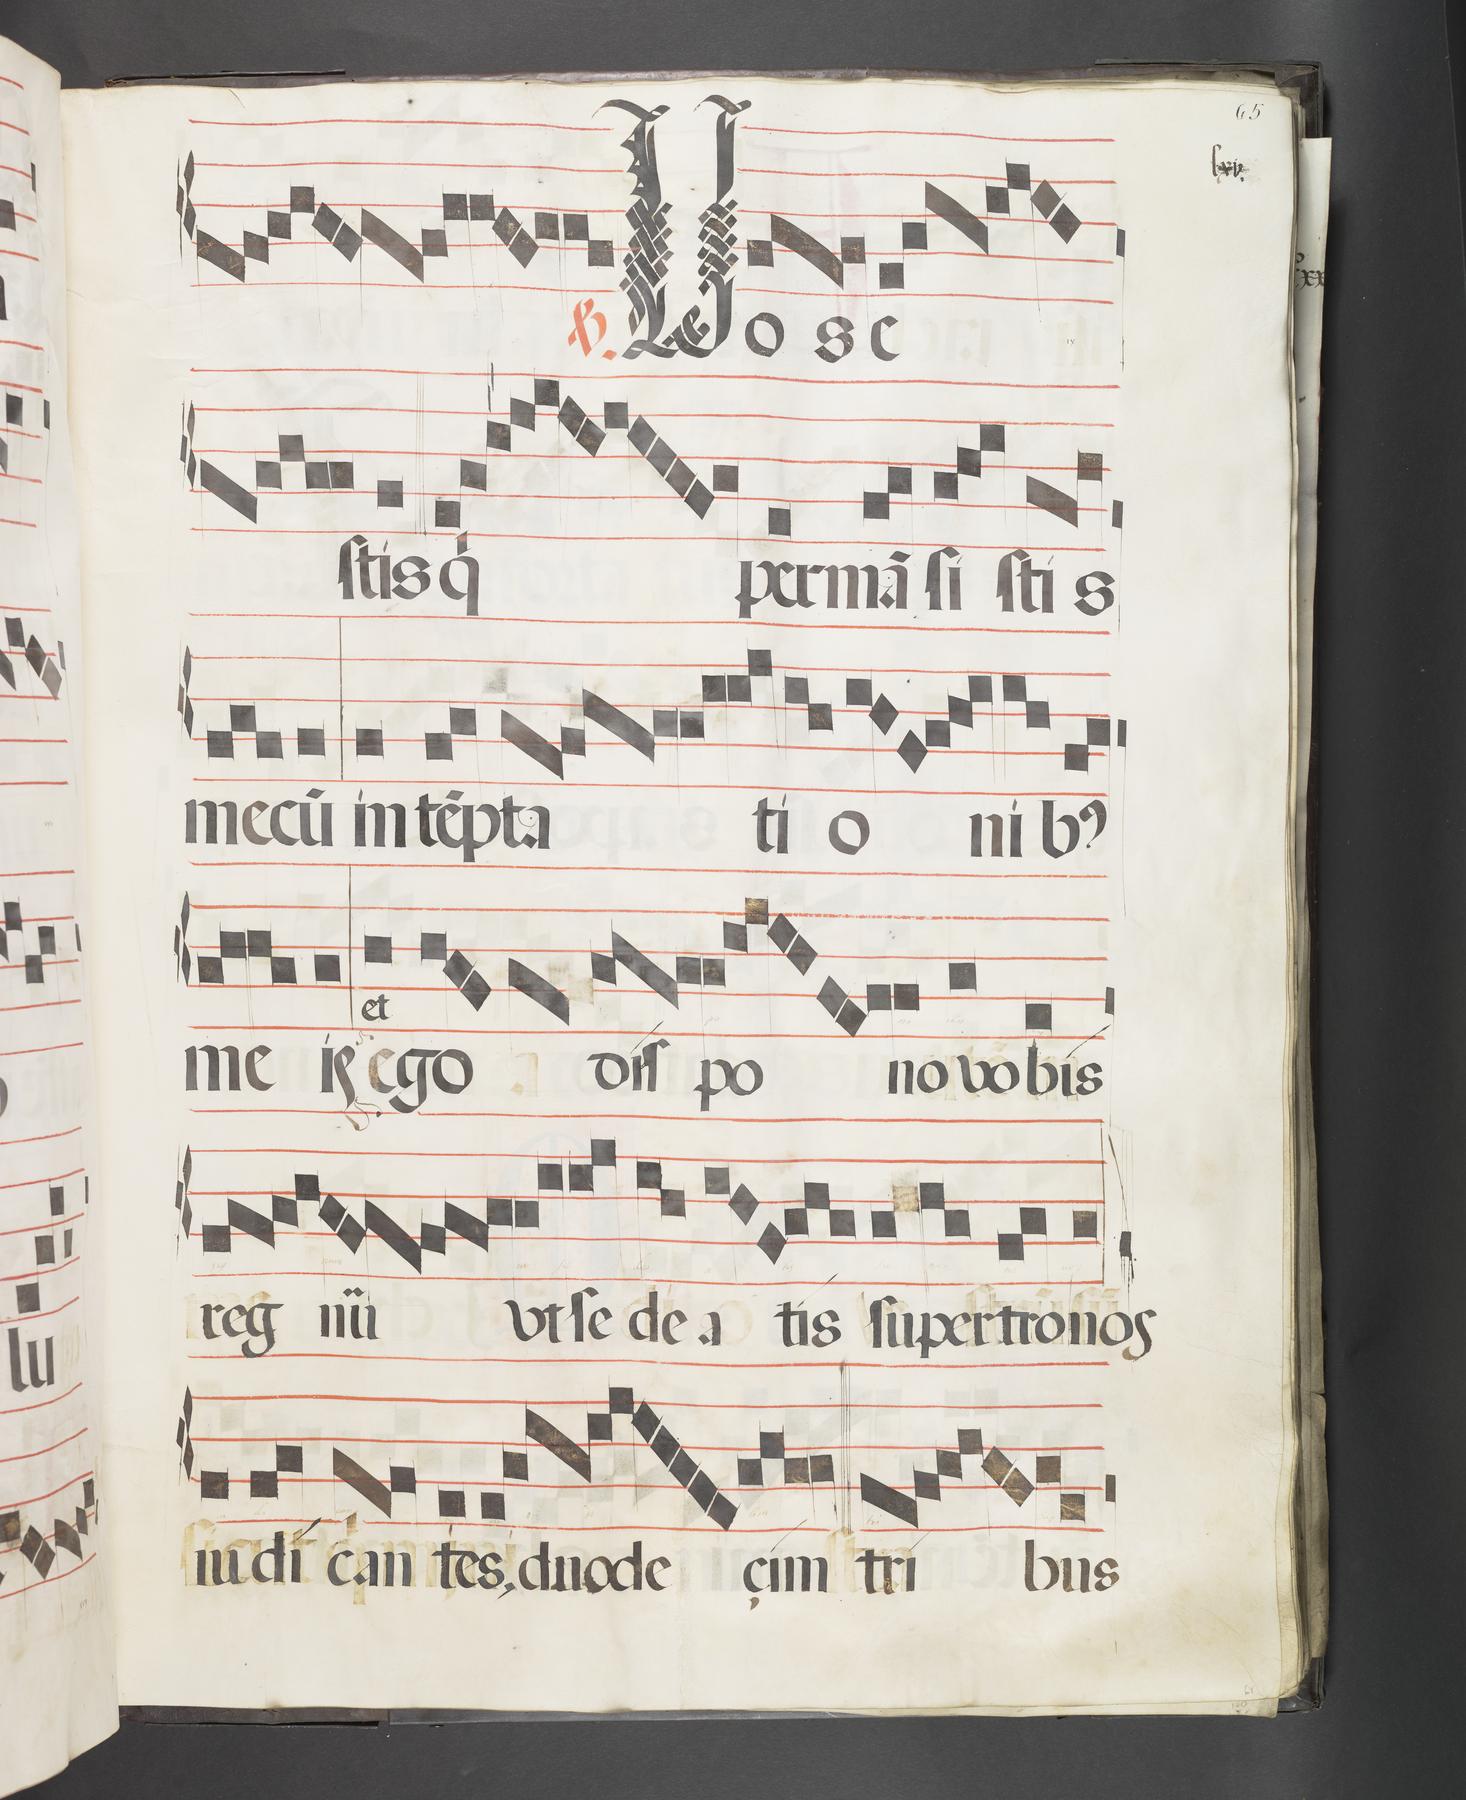 65
lxv.
℟. Vos e
stis q̇ permāsi stis
mecū in tēpta ti o nib⁹
et
me is ego dis po no vobis
reg nū vt se de a tis super tronos
iudi can tes, duode çim tri bus
lu